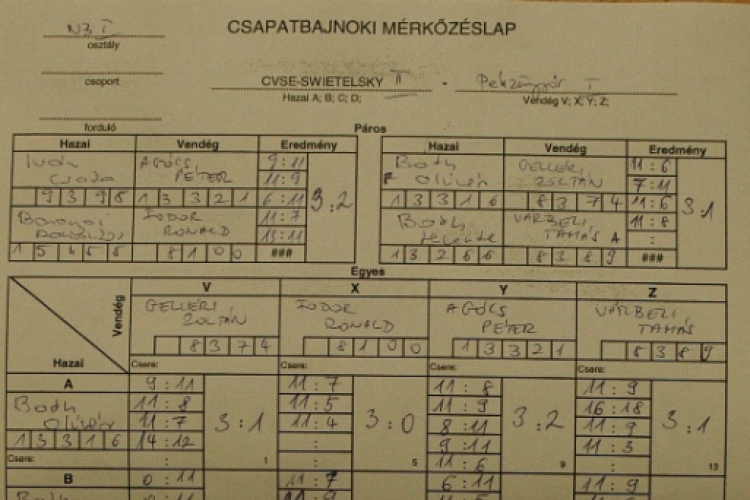 NB I
osztály
CSAPATBAJNOKI MÉRKŐZÉSLAP
csoport
CVSE-SWIETELSKY II - Pénzügyőr I
Hazai A; B; C; D;
Vendég V; X; Y; Z;
forduló
Páros
Hazai Vendég Eredmény
Hazai Vendég Eredmény
Iván AGÓCS 9:11
Csaba PÉTER 11:9
9 3 9 8 1 3 3 2 1 6:11 3:2
FODOR 11:7
RONALD 13:11
1 5 4 5 5 8 1 0 0 ###
Both GELLÉRI 11:6
Olivér ZOLTÁN 7:11
1 3 3 1 6 8 3 7 4 11:6 3:1
Both VÁRBELI 11:8
Levente TAMÁS A :
1 3 2 6 6 8 3 8 9 ###
Egyes
V X Y Z
Vendég
GELLÉRI FODOR AGÓCS VÁRBELI
ZOLTÁN RONALD PÉTER TAMÁS
8 3 7 4 8 1 0 0 1 3 3 2 1 8 3 8 9
Hazai
Csere: Csere: Csere: Csere:
A 9:11 11:7 11:8 11:9
Both 11:8 11:5 11:9 16:18
Olivér 11:7 3:1 11:4 3:0 8:11 3:2 11:9 3:1
1 3 3 1 6 14:12 : 9:11 11:3
Csere: : 1 : 5 11:6 9 : 13
B 0:11 11:7 6:11 11:9
Both